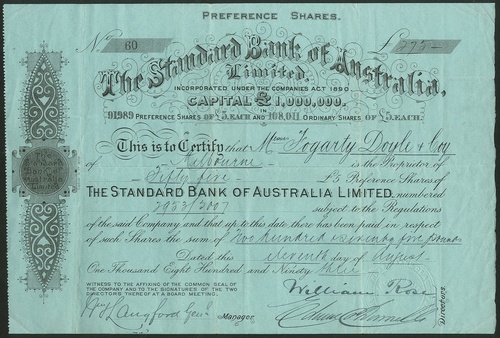 PREFERENCE SHARES.
No 60 £ 275 -
The Standard Bank of Australia,
Limited.
INCORPORATED UNDER THE COMPANIES ACT 1890.
CAPITAL £1,000,000.
IN
91989 PREFERENCE SHARES OF £5.EACH AND 108,011 ORDINARY SHARES OF £5.EACH.
This is to Certify that Messrs Fogarty Doyle & Coy
of Melbourne is the Proprietor of
Fifty five £5 Preference Shares of
THE STANDARD BANK OF AUSTRALIA LIMITED, numbered
2953/3007 subject to the Regulations
of the said Company and that up to this date there has been paid in respect
of such Shares the sum of Two hundred & seventy five pounds
Dated this eleventh day of August
One Thousand Eight Hundred and Ninety
WITNESS TO THE AFFIXING OF THE COMMON SEAL OF
THE COMPANY AND TO THE SIGNATURES OF THE TWO
DIRECTORS THEREOF AT A BOARD MEETING.
William Rose
Langford Genl Manager.
Directors
The Standard Bank of Australia Limited